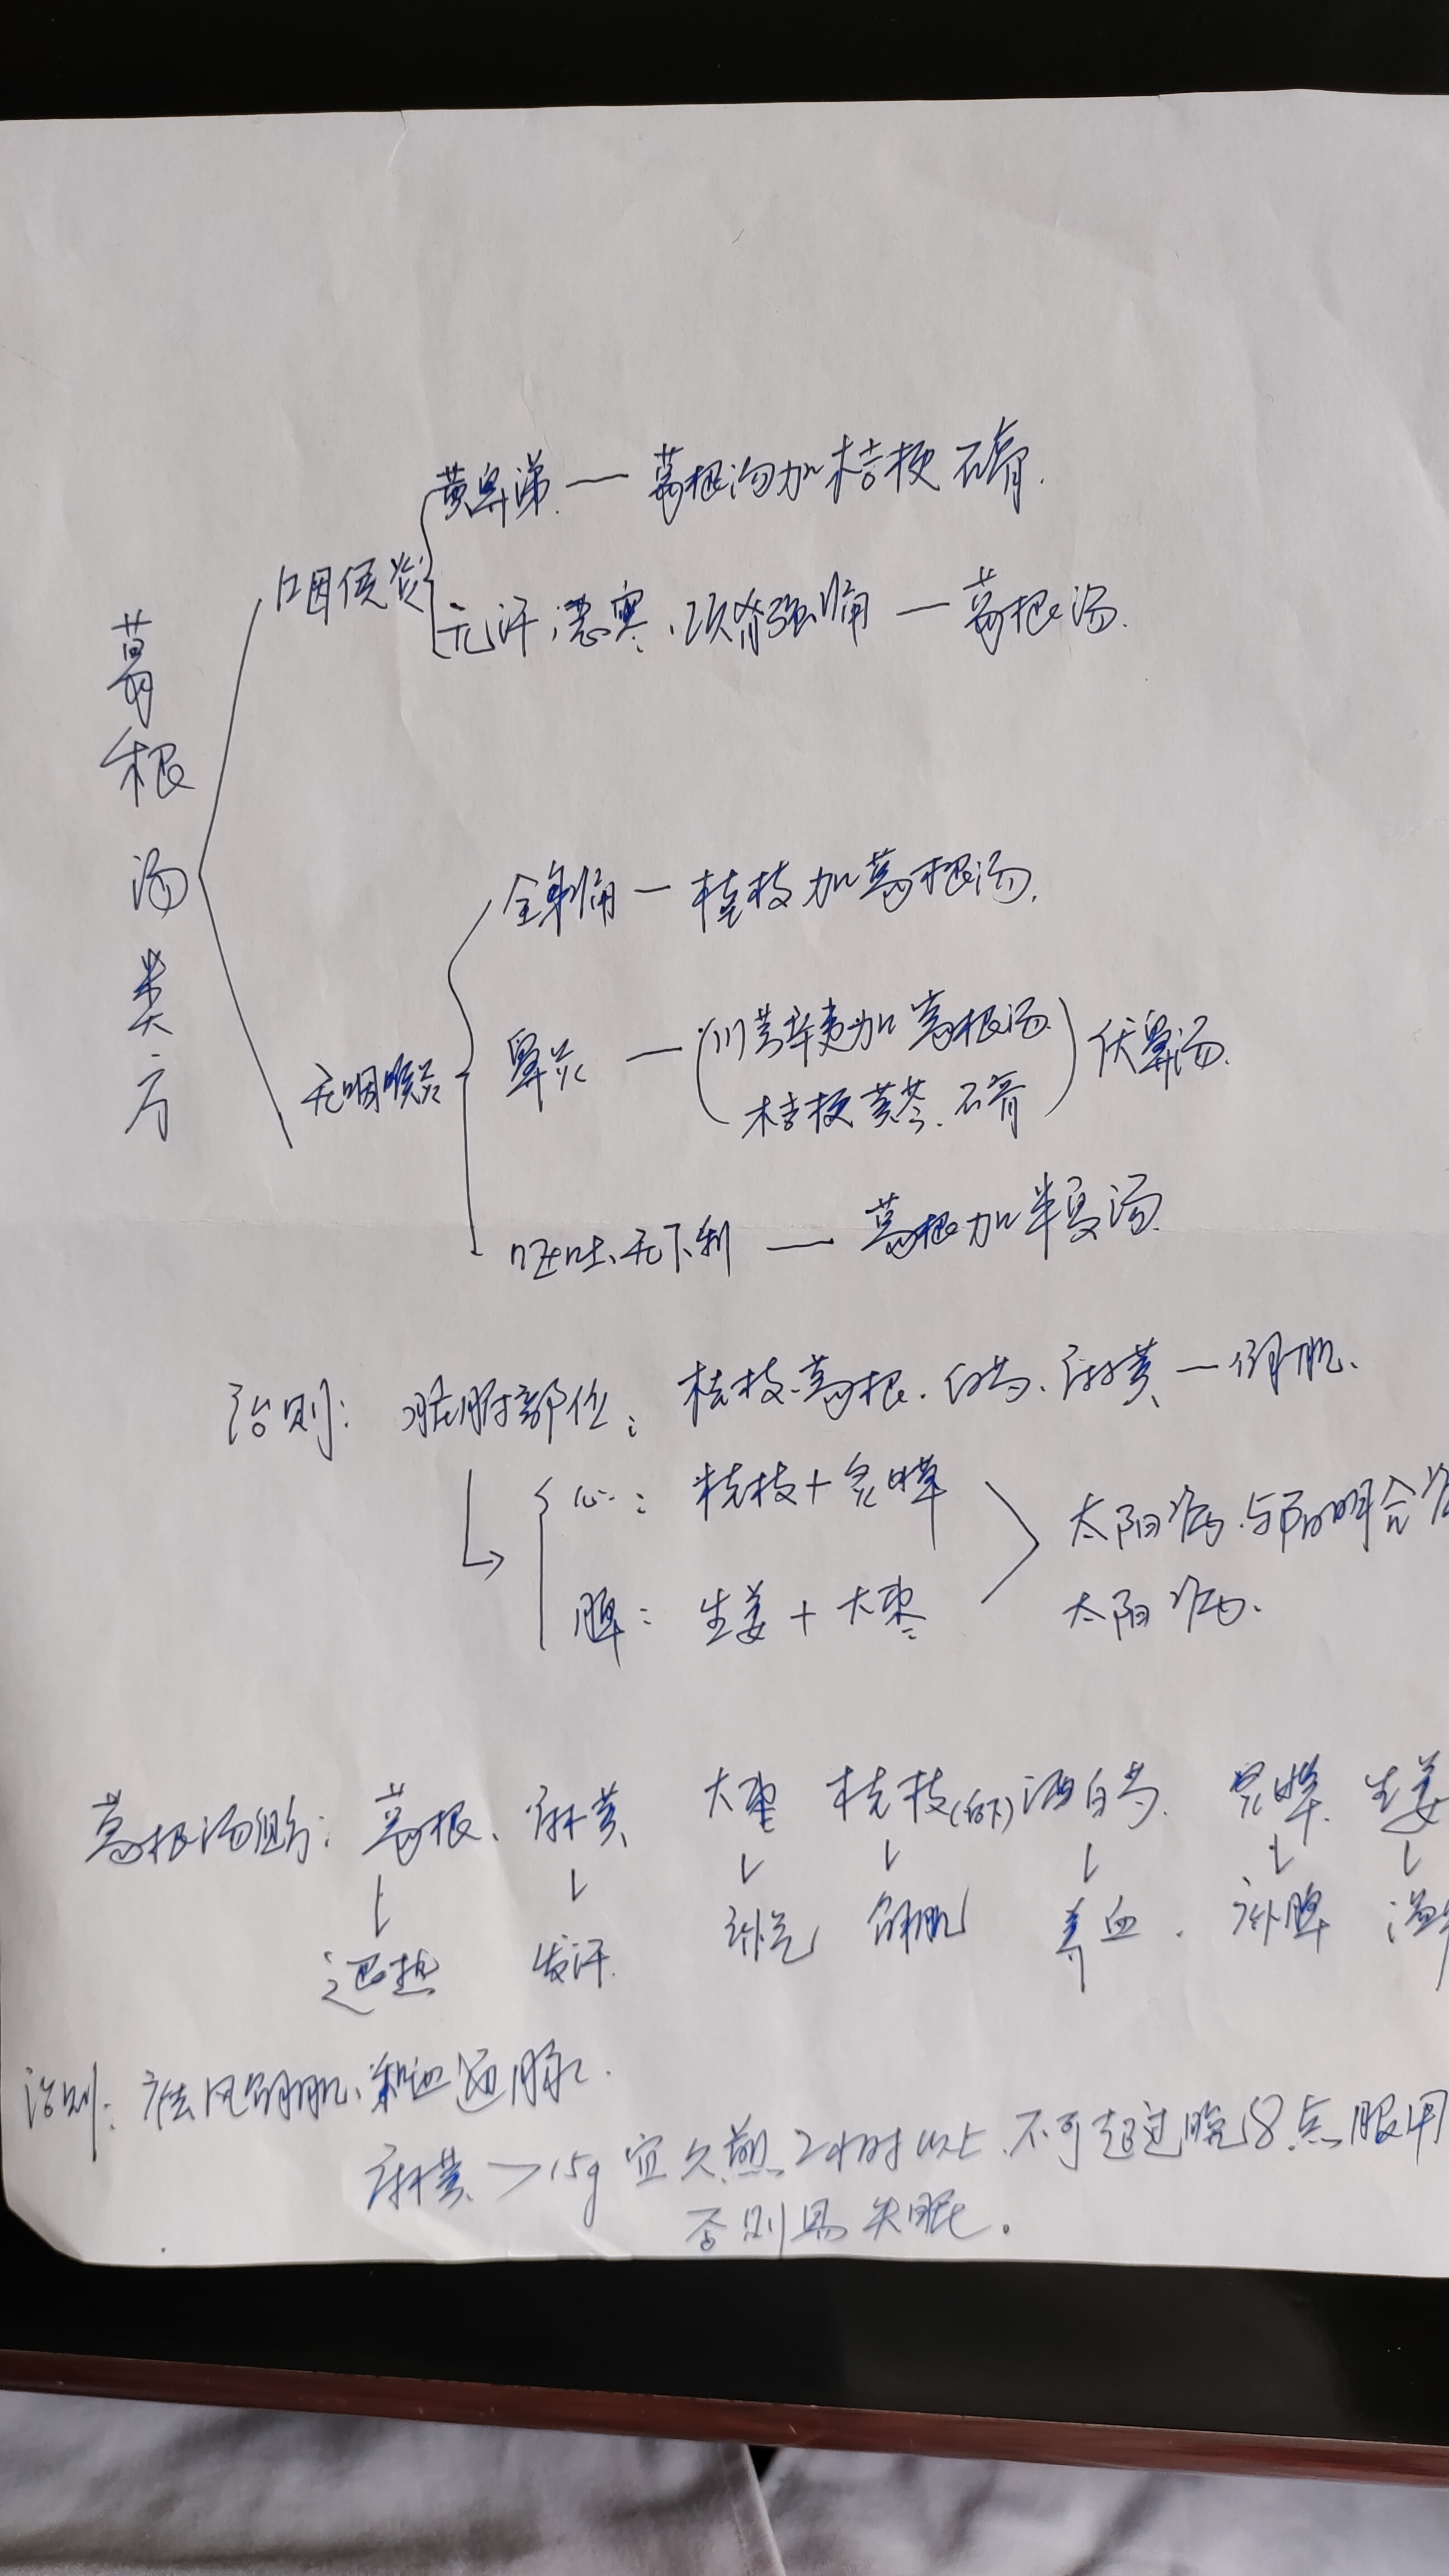 葛根汤类方
咽侯炎
黄鼻涕 — 葛根汤加桔梗 石膏.
无汗,恶寒、项脊强痛 — 葛根汤.
无咽喉炎
全身痛 — 桂枝加葛根汤.
鼻炎 — (川芎辛夷加葛根汤
桔梗 黄芩. 石膏) 伏鼻汤.
呕吐、无下利 — 葛根加半夏汤.
治则: 脏腑部位: 桂枝.葛根.白芍、麻黄 — 解肌.
心: 桂枝+炙甘草
脾: 生姜+大枣
太阳病.与阳明合病
太阳病.
葛根汤组方: 葛根、麻黄 大枣 桂枝(后下) 酒白芍. 炙甘草. 生姜
退热 发汗. 补气 解肌 养血. 补脾 温
治则: 祛风解肌、和血通脉.
麻黄 >15g 宜久煎 2小时以上.不可超过晚8点服用
否则易失眠.